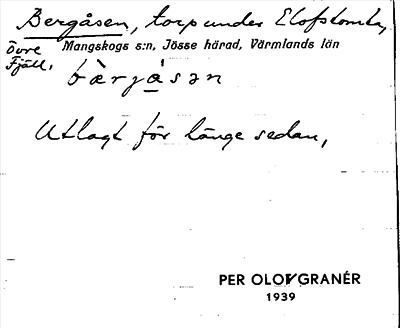 Bergåsen, torp under Elofstomta,
Övre Fjäll,
Mangskogs s:n, Jösse härad, Värmlands län
bærjåsən
Utlagt för länge sedan,
PER OLOV GRANÉR
1939